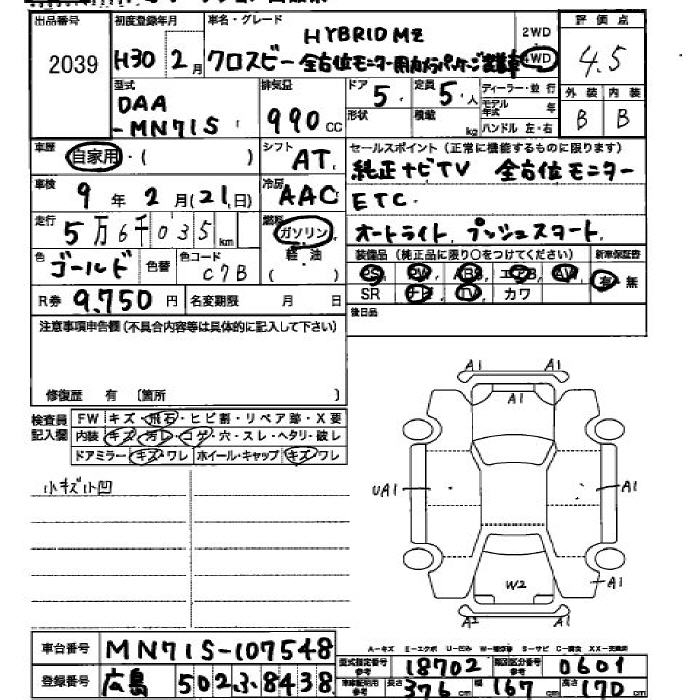 出品番号 初度登録年月 車名・グレード 評価点
2039 H30年 2月 HYBRID MZ 2WD 4WD 4.5
クロスビー 全方位モニター用カメラパッケージ装着車
型式 排気量 ドア 定員 ディーラー・並行 外装 内装
DAA-MN71S 990cc 5 5人 モデル年式 年 B B
形状 積載 kg ハンドル 左・右
車歴 自家用・( ) シフト AT セールスポイント(正常に機能するものに限ります)
純正ナビTV 全方位モニター
車検 9年2月(21日) 冷房 AAC ETC.
走行 5万6千035km 燃料 ガソリン オートライト、プッシュスタート.
軽・油
色 ゴールド 色替 色コード C7B ( ) 装備品(純正品に限り○をつけてください) 新車保証書
PS PW ABS エアB AW 有・無
R券 9,750円 名変期限 月 日 SR ナビ TV カワ
注意事項申告欄(不具合内容等は具体的に記入して下さい) 後日品
修復歴 有 〔箇所 〕
検査員記入欄 FW キズ・飛石・ヒビ割・リペア跡・X要
内装 キズ・汚レ・コゲ・穴・スレ・ヘタリ・破レ
ドアミラー キズ・ワレ ホイール・キャップ キズ・ワレ
小キズ小凹
A1 A1
A1
UA1 A1
W2 A1
A2 A1
A-キズ E-エクボ U-凹み W-補修跡 S-サビ C-腐食 XX-交換済
車台番号 MN71S-107548 型式指定番号 参考 18702 類別区分番号 参考 0601
登録番号 広島 502 ふ 8438 車庫証明用 参考 長さ 376cm 幅 167cm 高さ 170cm